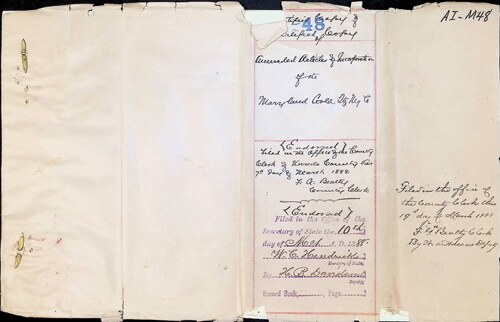 AI-M48
48
Certified Copy of
Certified Copy
Amended Articles of Incorporation
of the
Maryland Gold
(Endorsed)
Filed in the Office of the County
Clerk of Nevada County this
7th day of March 1888
F. G. Beatty
County Clerk
(Endorsed)
Filed in the Office of the
Secretary of State the 10th
day of Mch A. D. 1888
W. C. Hendricks
Secretary of State
By H. B. Davidson
Deputy
Record Book Page
Filed in the office of
the County Clerk this
19th day of March
F. G. Beatty Clerk
By